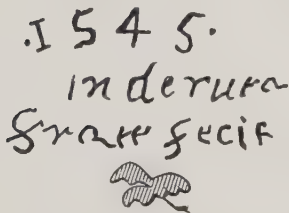 .I 5 4 5.
in deruta
frate fecit